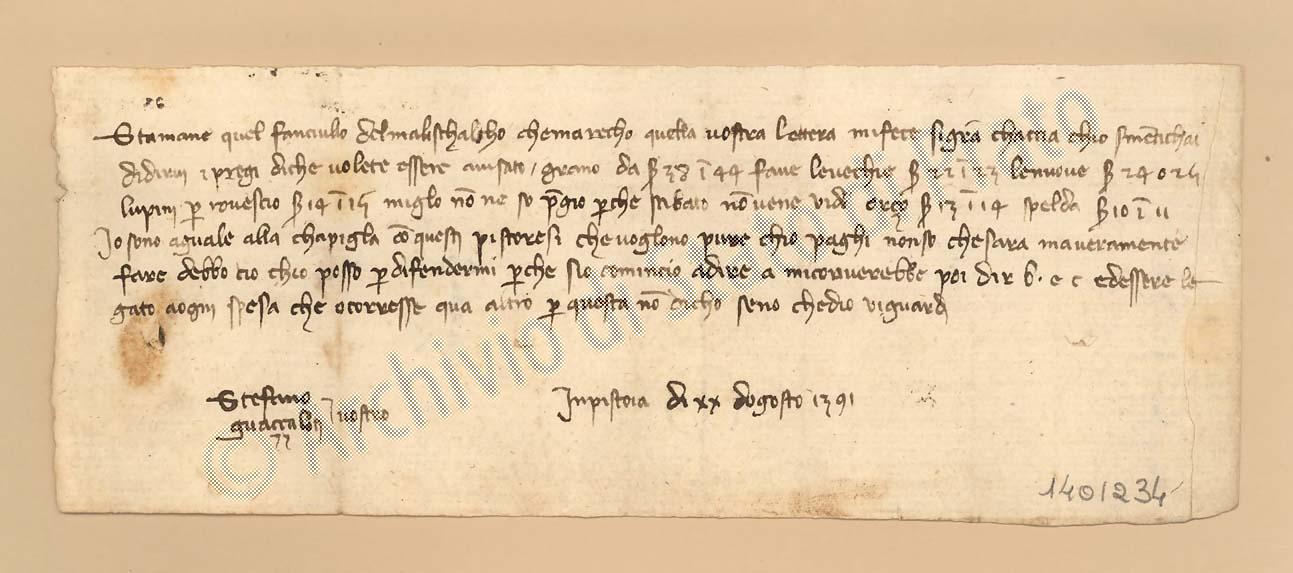 Stamane quel fanciullo del malischalcho che mi recho quella vostra lettera mi fece sì grã chaccia ch'io smẽtichai
di dirvi i pregi di che volete essere avisato / grano da s 38 ĩ 44 fave levechie s 22 ĩ 23 lenuove s 24 o 25
lupini p rovescio s 14 ĩ 15 miglo nõ ne so pgio pche stibato nõ vene vidi orço s 13 ĩ 14 spelda s 10 ĩ 11
Io sono aguale alla chapigla cõ questi pistoresi che voglono pure chio paghi nonso chesara ma veramente
fare debbo cio chio posso p difendermi pche sio comincio adire a mi converebbe poi dir b. e c ed essere le
gato aogni spesa che ocorresse qua altro p questa nõ dicho seno chedio vi guardi
Stefano
guaççalotti
vostro
In pistoia di xx dogosto 1391
1401234
© Archivio di Stato Prato